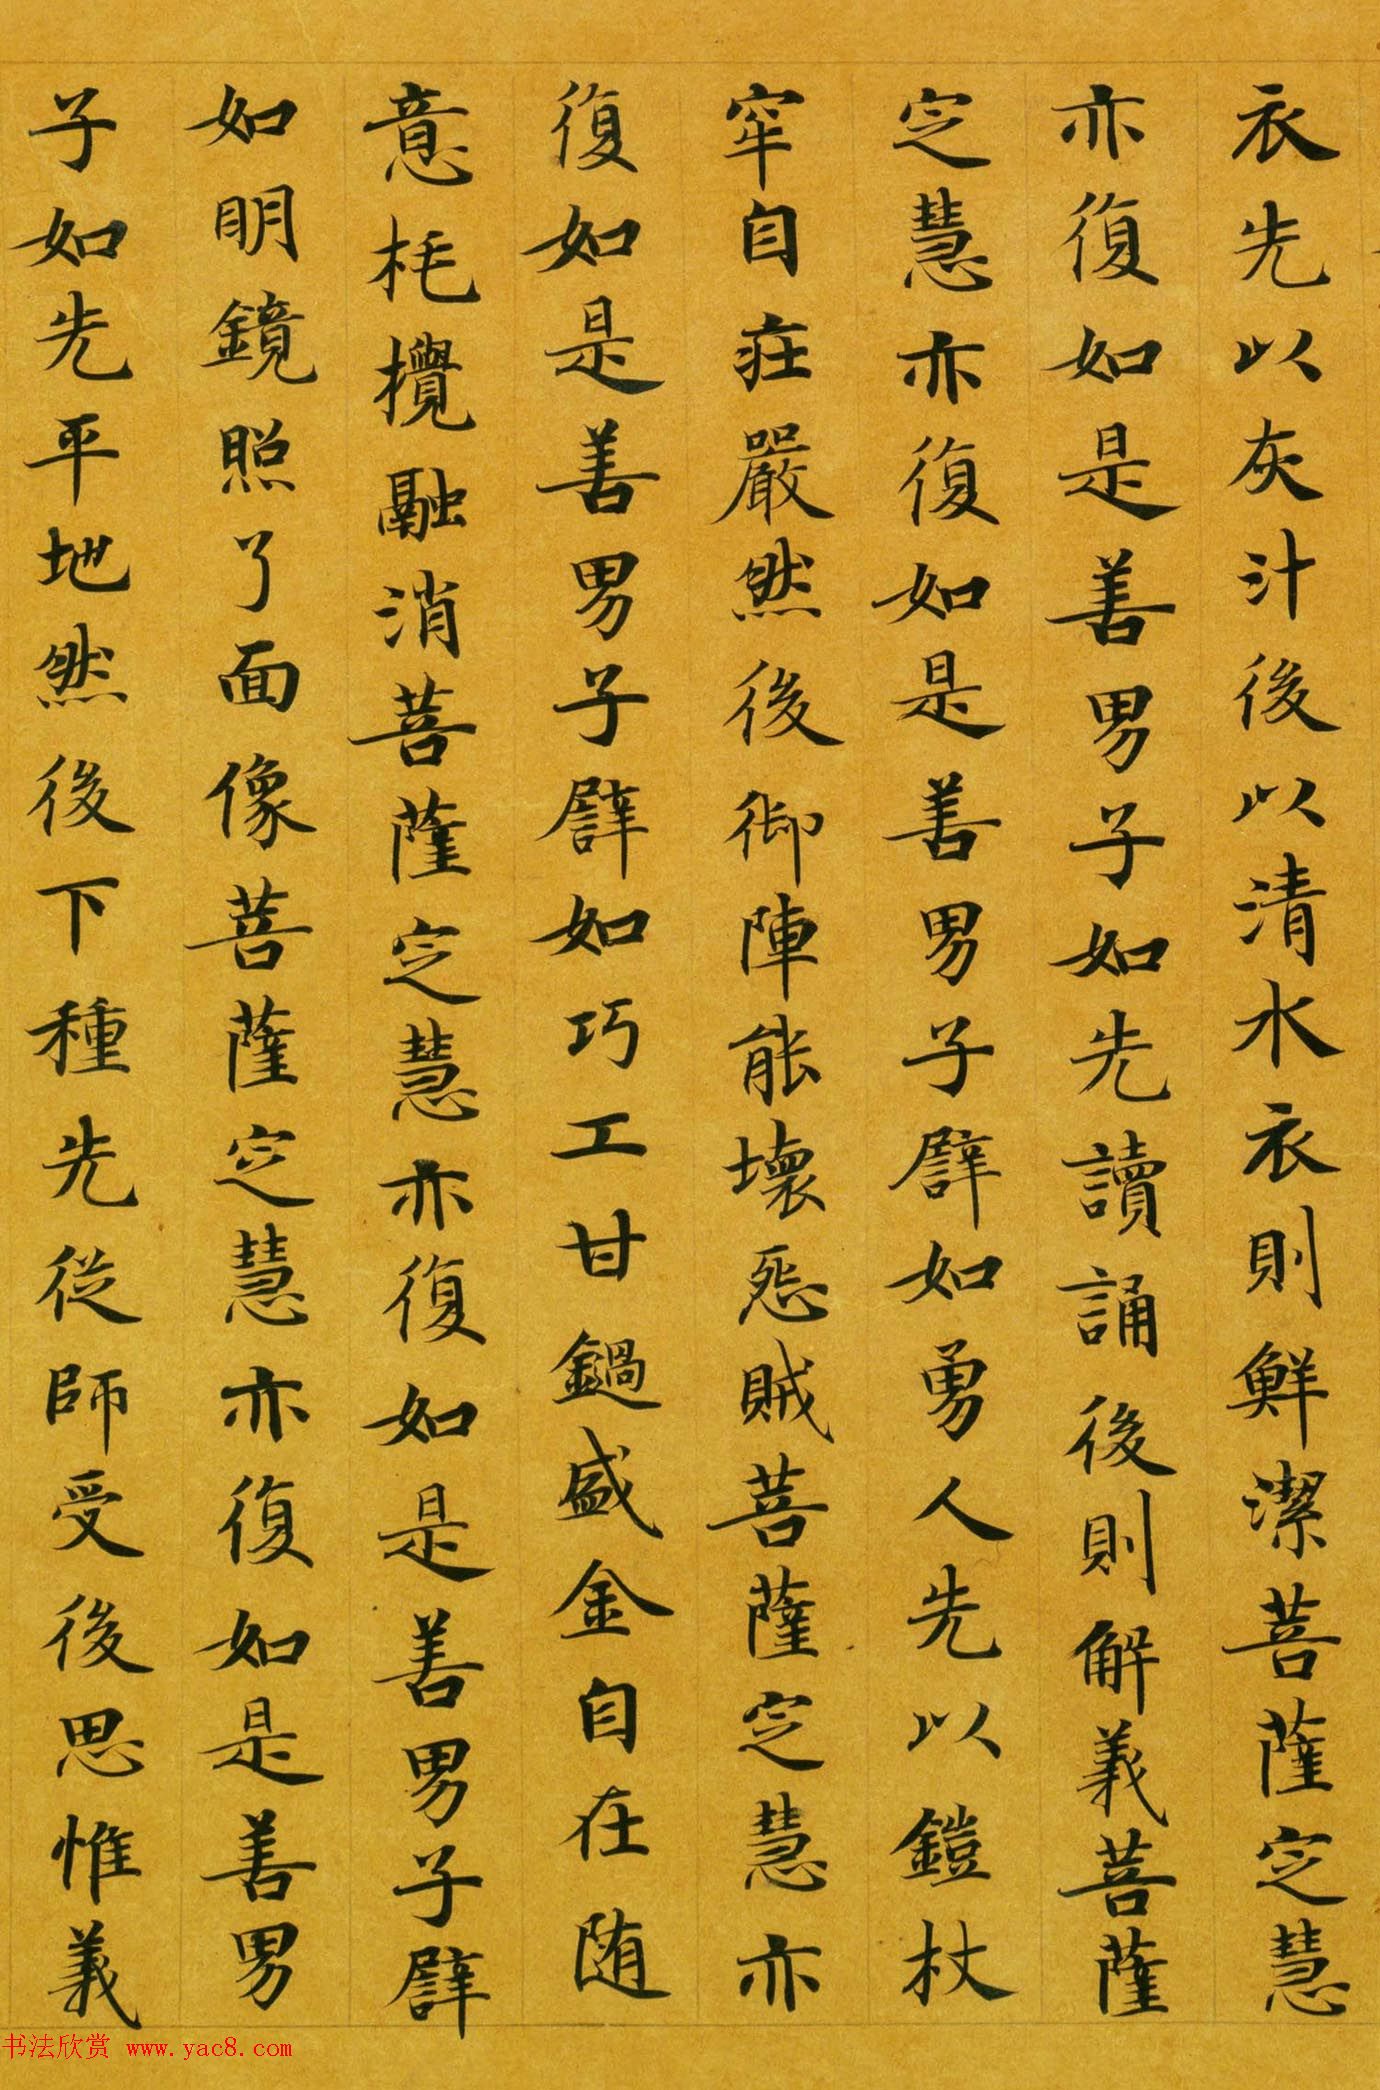 衣先以灰汁後以清水衣則鮮潔菩薩定慧
亦復如是善男子如先讀誦後則解義菩薩
定慧亦復如是善男子譬如勇人先以鎧杖
牢自莊嚴然後御陣能壞怨賊菩薩定慧亦
復如是善男子譬如巧工甘鍋盛金自在随
意枆攪融消菩薩定慧亦復如是善男子譬
如明鏡照了面像菩薩定慧亦復如是善男
子如先平地然後下種先從師受後思惟義
书法欣赏 www.yac8.com